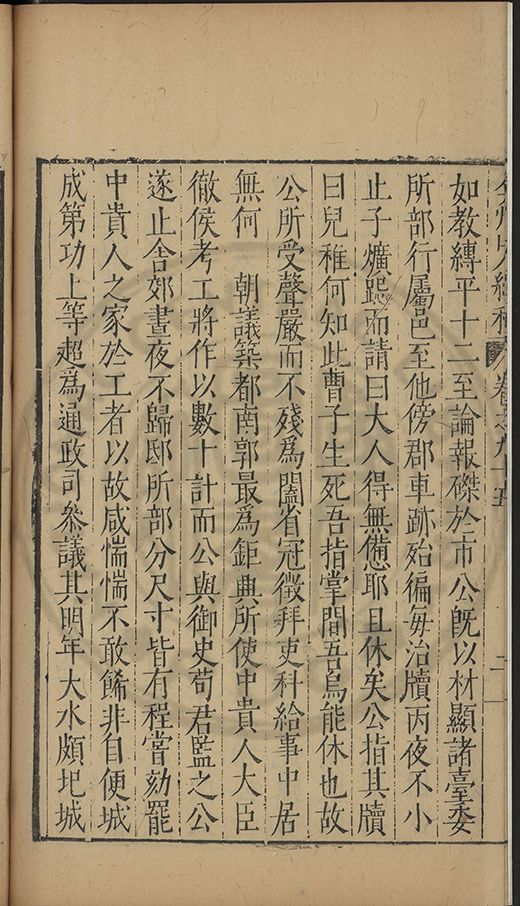 弇州山人續稿 卷之九十五 二
如教縛平十二至論報磔於市公旣以材顯諸臺委
所部行屬邑至他傍郡車跡殆徧每治牘丙夜不小
止子爌跽而請曰大人得無憊耶且休矣公指其牘
曰兒稚何知此曹子生死吾指掌間吾烏能休也故
公所受聲嚴而不殘為闔省冠徵拜吏科給事中居
無何 朝議築都南郭最為鉅典所使中貴人大臣
徹侯考工將作以數十計而公與御史苟君監之公
遂止舍郊晝夜不歸邸所部分尺寸皆有程嘗劾罷
中貴人之家於工者以故咸惴惴不敢餙非自便城
成第功上等超為通政司叅議其明年大水頗圮城